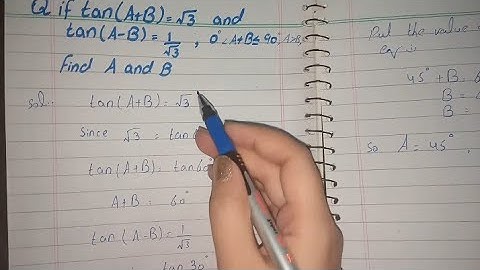 Q if tan(A+B)=√3 and
tan(A-B)= 1/√3 , 0°<A+B≤90°, A>B,
find A and B
sol..
tan(A+B)=√3
Since √3 = tan
tan(A+B)= tan60°
A+B = 60°
tan(A-B)= 1/√3
tan30°
Put the value
eq:
45°+B =
B =
B =
So A=45°,